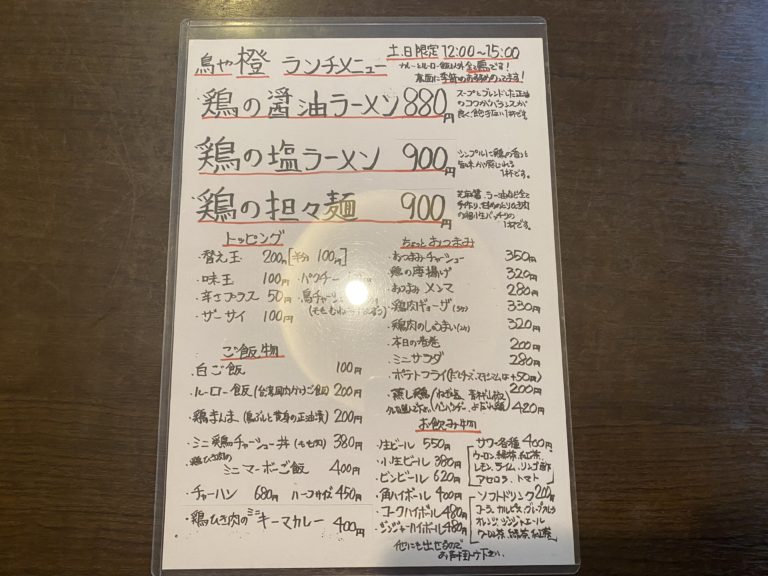 鳥や橙 ランチメニュー
土.日限定 12:00~15:00
カレーとルーロー飯以外全て鶏です!
裏面に季節のおすすめのってます!
鶏の醤油ラーメン 880円
スープとブレンドした正油
のコクがバランスが
良く、飽きない1杯です。
鶏の塩ラーメン 900円
シンプルに鶏の香りと
旨味が感じれる
1杯です。
鶏の担々麺 900円
芝麻醤、ラー油など全て
手作り。
1杯です。
トッピング
・替え玉 200円[半分 100円]
・味玉 100円 ・パクチー
・辛さプラス 50円 ・鳥チャーシュー
・ザーサイ 100円
ご飯物
・白ご飯 100円
・ルーロー飯(台湾風肉かけご飯) 200円
・鶏まんま(鳥ぶしと黄身の正油漬) 200円
・ミニ鶏チャーシュー丼(もも肉) 380円
・鶏ひき肉の
ミニマーボーご飯 400円
・チャーハン 680円 ハーフサイズ 450円
・鶏ひき肉のミニキーマカレー 400円
ちょっとおつまみ
・おつまみチャーシュー 350円
・鶏の唐揚げ 320円
・おつまみメンマ 280円
・鶏肉ギョーザ 330円
・鶏肉のしゅうまい 320円
・本日の春巻 200円
・ミニサラダ 280円
・ポテトフライ(+50円)
・蒸し鶏 200円
420円
お飲み物
・生ビール 550円
・小生ビール 380円
・ビンビール 620円
・角ハイボール 400円
・コークハイボール 480円
・ジンジャーハイボール 480円
サワー各種 400円
ウーロン、緑茶、紅茶、
レモン、ライム、リンゴ酢
アセロラ、トマト
ソフトドリンク 200円
コーラ、カルピス、グレープカルピス
オレンジ、ジンジャエール
ウーロン茶、緑茶、紅茶
他にも出せるので
お声掛け下さい。